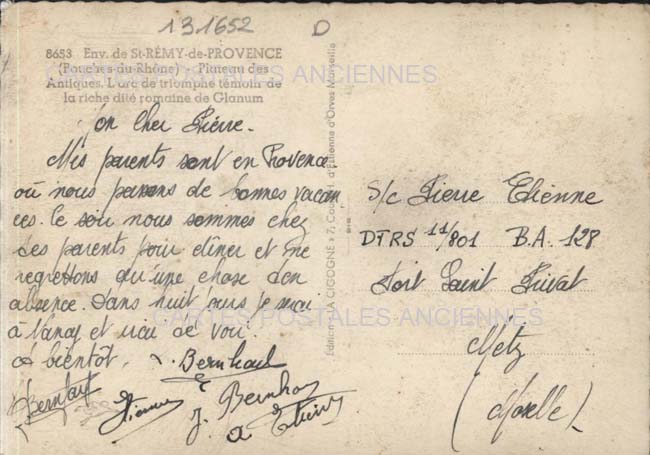 131652 D
8653 Env. de St-RÉMY-de-PROVENCE
(Bouches-du-Rhône) - Plateau des
Antiques. L'arc de triomphe témoin de
la riche cité romaine de Glanum
CARTES POSTALES ANCIENNES
Mon Cher Pierre.
Mes parents sont en Provence
où nous passons de bonnes vacan
ces. Ce soir nous sommes chez
tes parents pour dîner et ne
regrettons qu'une chose ton
absence. Dans huit jours je serai
à Nancy et de
à bientôt. Bernhard
Bernhard
Etienne J. Bernhard
Etienne
Edition "LA CIGOGNE" 7, Cours H. d'Estienne d'Orves Marseille
S/c Pierre Etienne
DTRS 11/801 B.A. 128
Fort Saint Privat
CARTES POSTALES ANCIENNES
Metz
(Moselle)